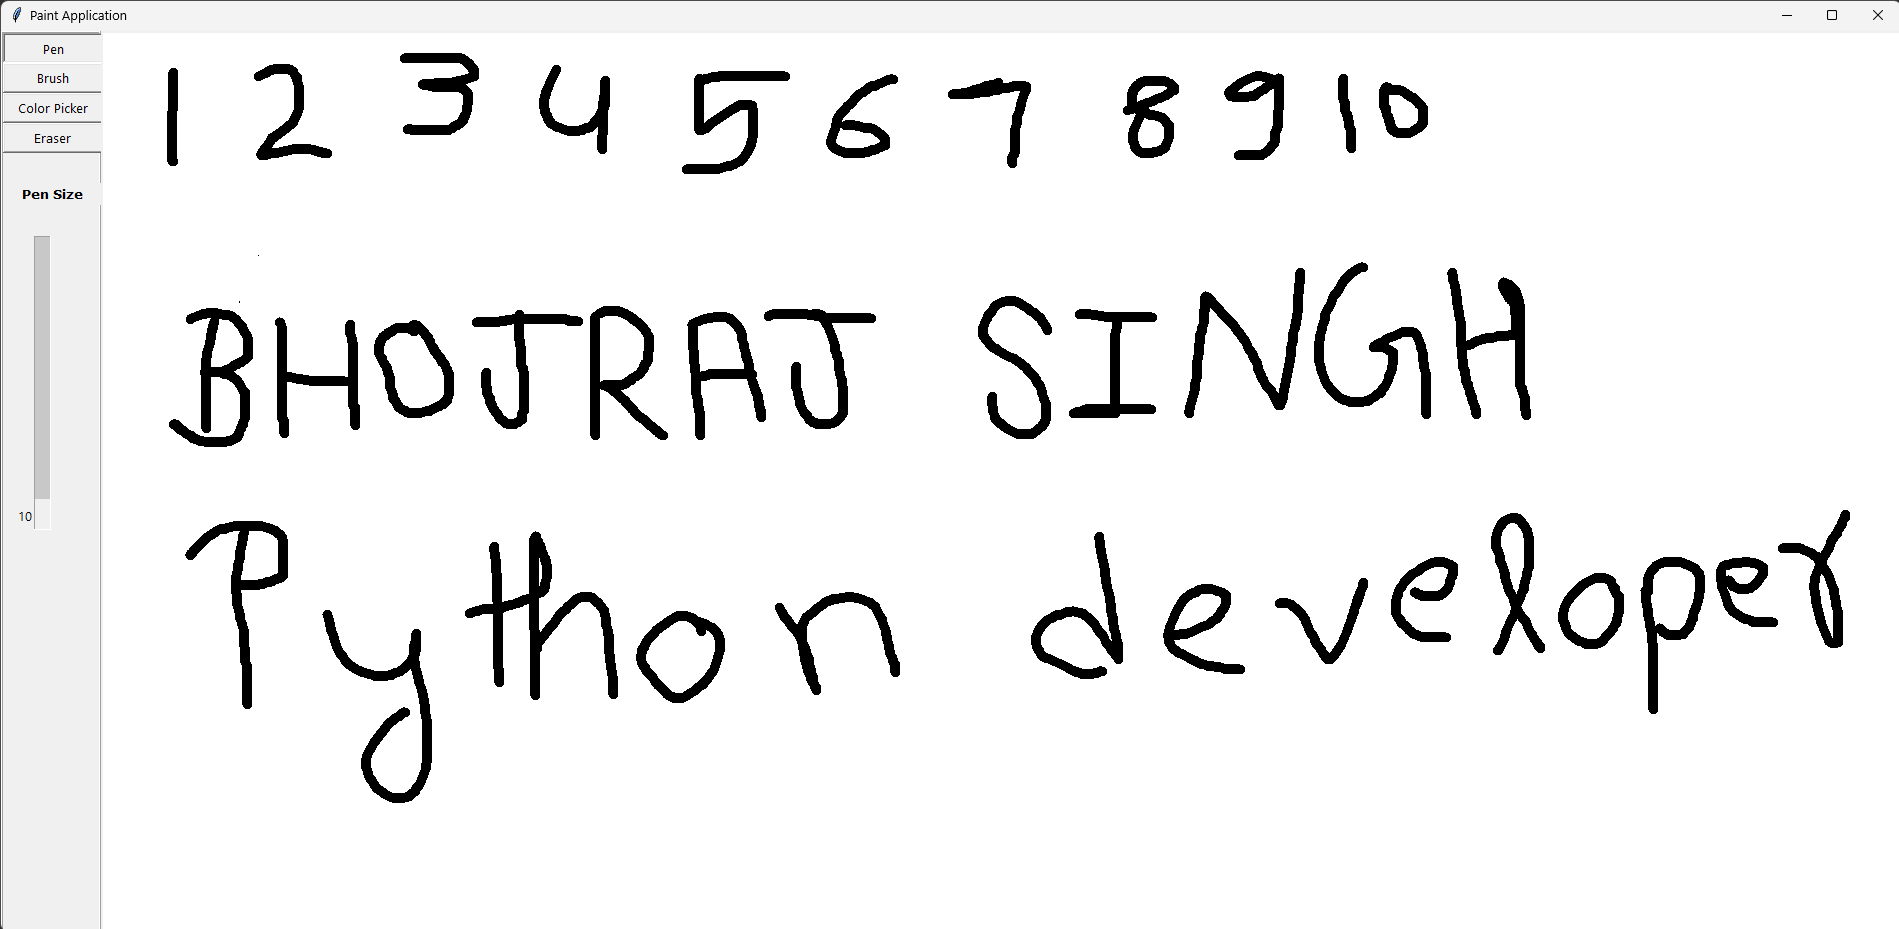 Paint Application
Pen
Brush
Color Picker
Eraser
Pen Size
10
1 2 3 4 5 6 7 8 9 10
BHOJRAJ SINGH
Python developer